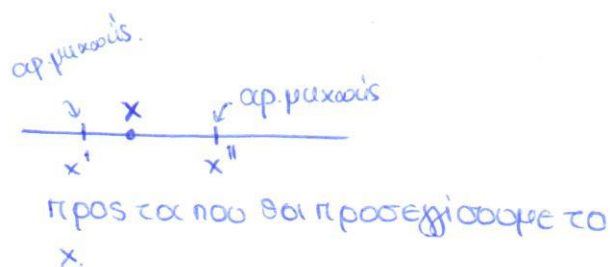 αρ. μηχανής.
αρ. μηχανής
x
x' x''
προς τα που θα προσεγγίσουμε το
x.